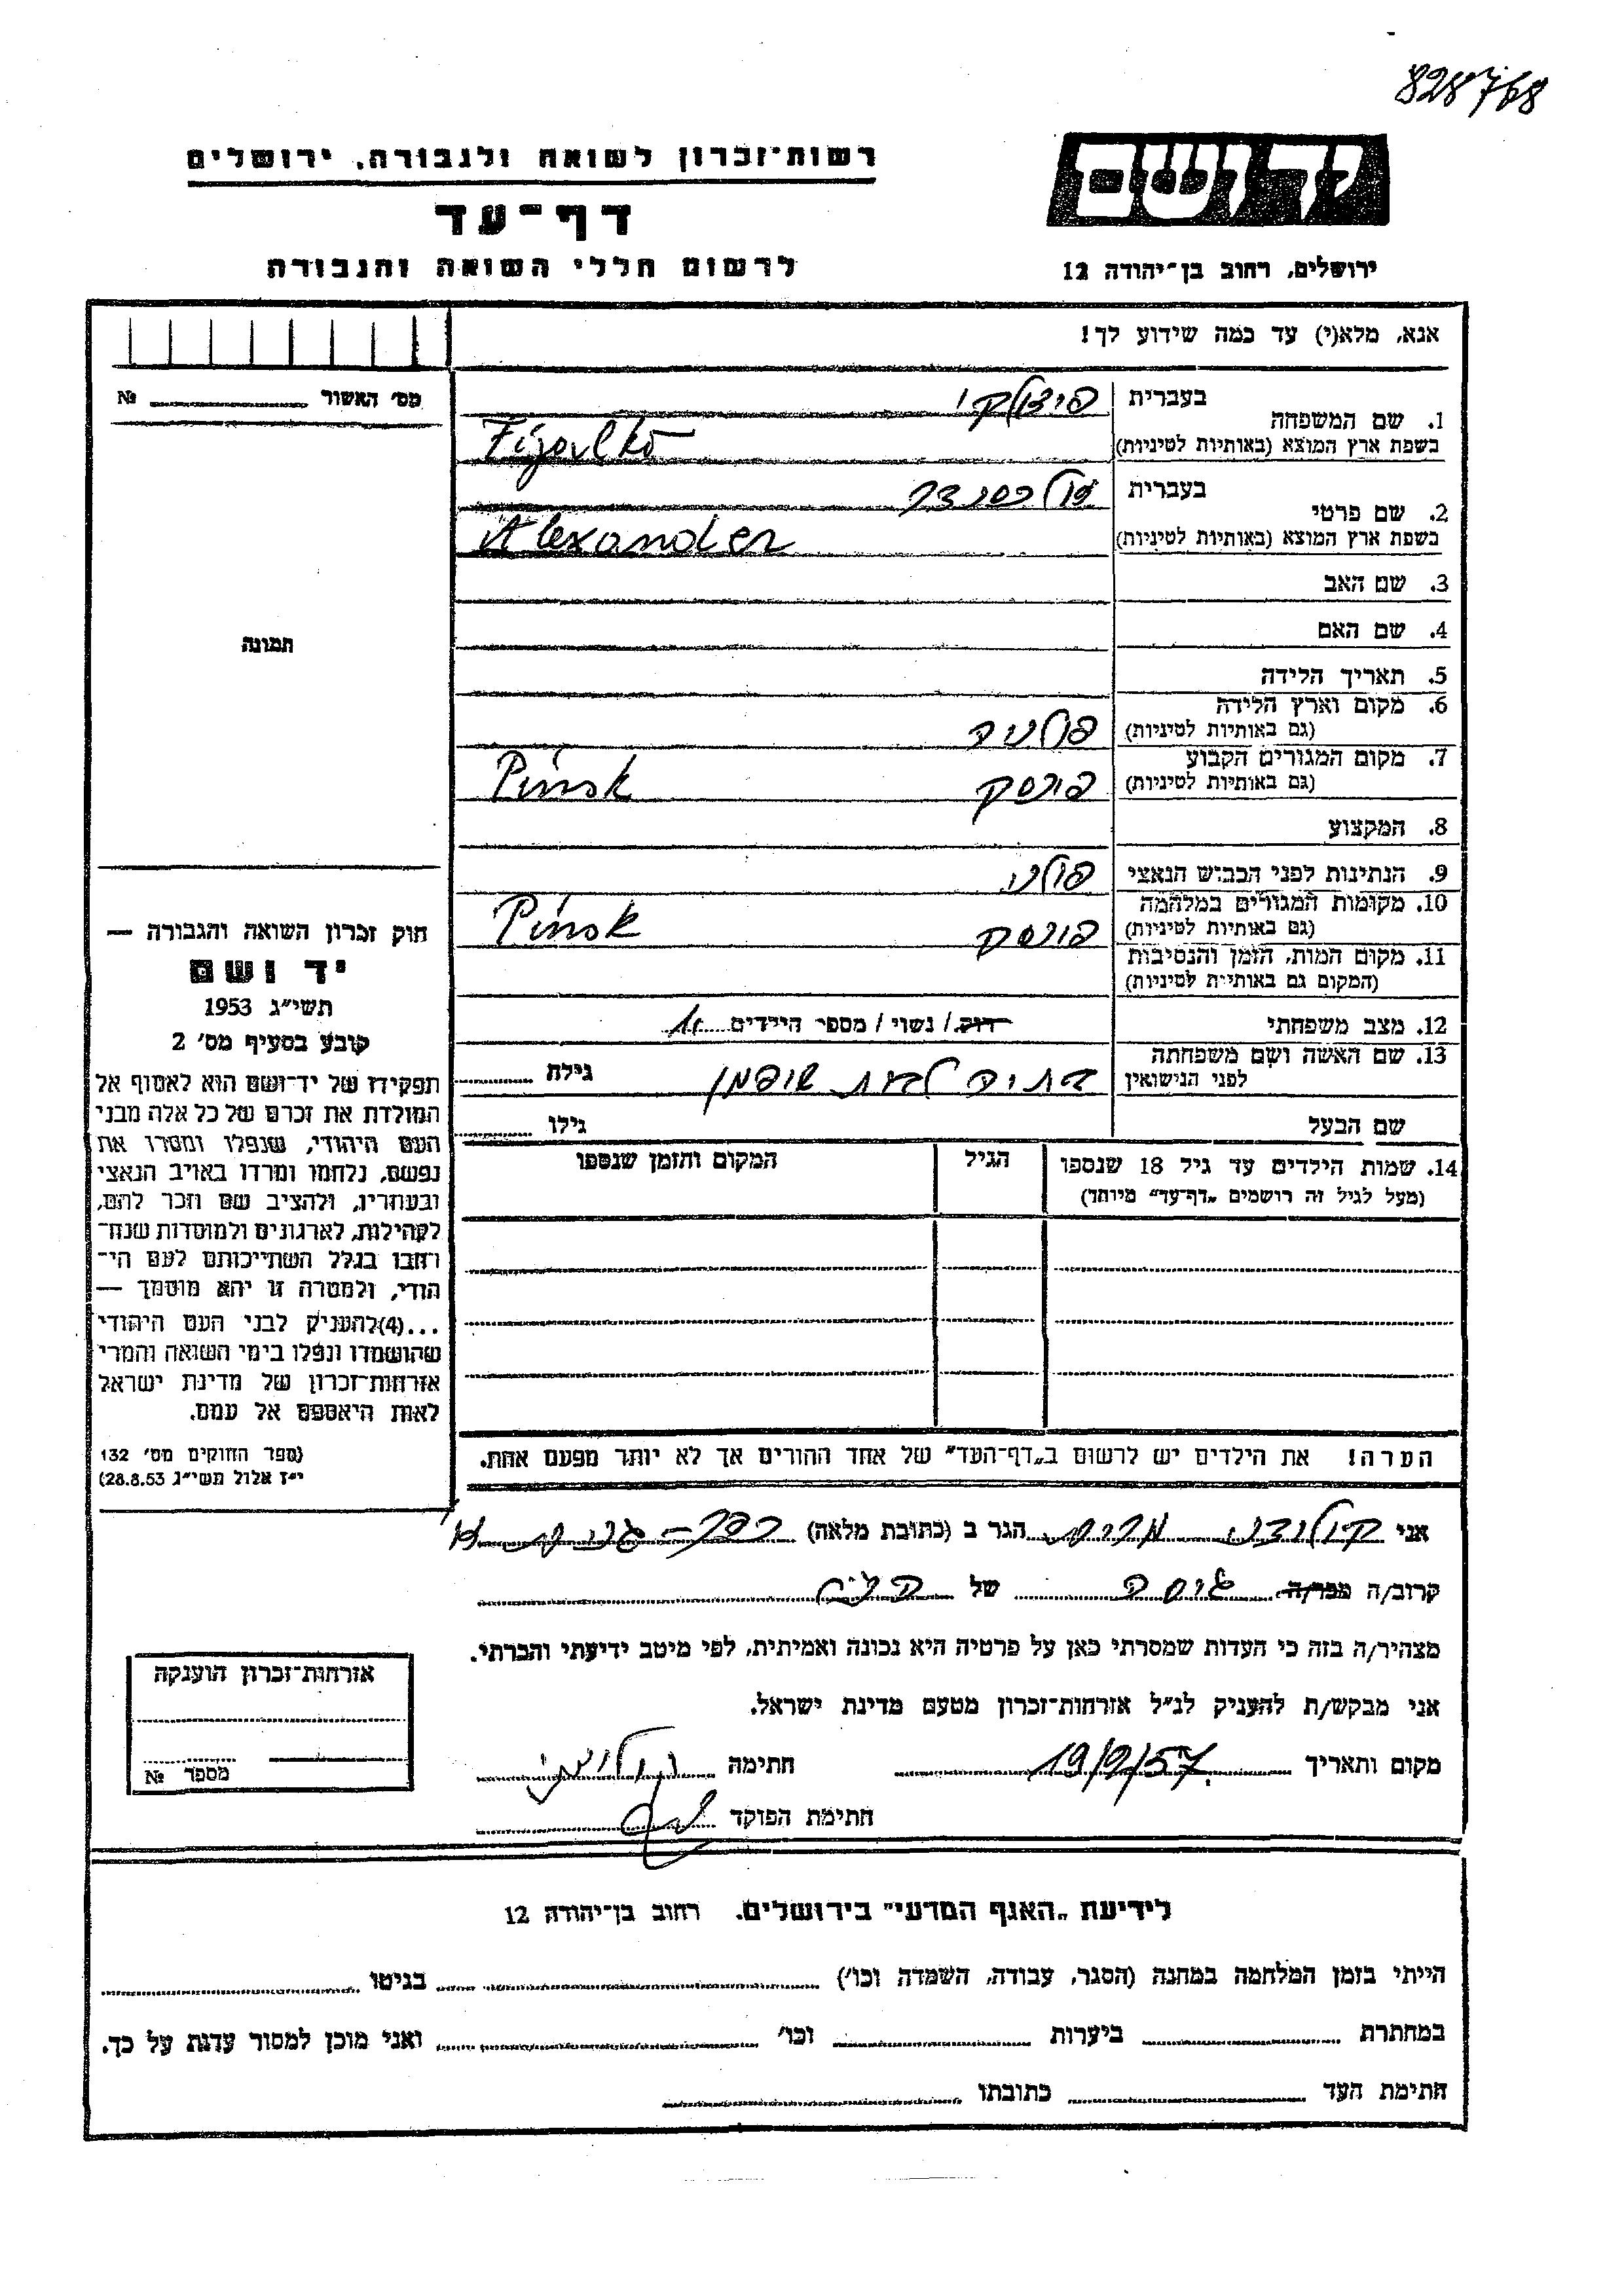 828768
יד ושם
ירושלים, רחוב בן־יהודה 12
רשות־זכרון לשואה ולגבורה, ירושלים
דף־עד
לרשום חללי השואה והגבורה
אנא, מלא(י) עד כמה שידוע לך!
מס׳ האשור № 
1. שם המשפחה
בעברית
בשפת ארץ המוצא (באותיות לטיניות)
2. שם פרטי
בעברית אלכסנדר
בשפת ארץ המוצא (באותיות לטיניות) Alexander
3. שם האב
4. שם האם
5. תאריך הלידה
6. מקום וארץ הלידה
(גם באותיות לטיניות) פולניה
7. מקום המגורים הקבוע
(גם באותיות לטיניות) פינסק Pinsk
8. המקצוע
9. הנתינות לפני הכבוש הנאצי פולני
10. מקומות המגורים במלחמה
(גם באותיות לטיניות) פינסק Pinsk
11. מקום המות, הזמן והנסיבות
(המקום גם באותיות לטיניות)
12. מצב משפחתי רוק / נשוי / מספר הילדים
13. שם האשה ושם משפחתה
לפני הנישואין לבית גילה
שם הבעל גילו
14. שמות הילדים עד גיל 18 שנספו
(מעל לגיל זה רושמים „דף־עד" מיוחד)
הגיל
המקום והזמן שנספו
הערה! את הילדים יש לרשום ב„דף־העד" של אחד ההורים אך לא יותר מפעם אחת.
תמונה
חוק זכרון השואה והגבורה —
יד ושם
תשי״ג 1953
קובע בסעיף מס׳ 2
תפקידו של יד־ושם הוא לאסוף אל
המולדת את זכרם של כל אלה מבני
העם היהודי, שנפלו ומסרו את
נפשם, נלחמו ומרדו באויב הנאצי
ובעוזריו, ולהציב שם וזכר להם,
לקהילות, לארגונים ולמוסדות שנח־
רבו בגלל השתייכותם לעם הי־
הודי, ולמטרה זו יהא מוסמך —
...(4)להעניק לבני העם היהודי
שהושמדו ונפלו בימי השואה והמרי
אזרחות־זכרון של מדינת ישראל
לאות היאספם אל עמם.
(ספר החוקים מס׳ 132
י״ז אלול תשי״ג 28.8.53)
אני מרים הגר ב (כתובת מלאה)
קרוב/ה מכר/ה גיסה של
מצהיר/ה בזה כי העדות שמסרתי כאן על פרטיה היא נכונה ואמיתית, לפי מיטב ידיעתי והכרתי.
אני מבקש/ת להעניק לנ״ל אזרחות־זכרון מטעם מדינת ישראל.
מקום ותאריך 19/9/57 חתימה
חתימת הפוקד
אזרחות־זכרון הוענקה
מספר №
לידיעת „האגף המדעי" בירושלים. רחוב בן־יהודה 12
הייתי בזמן המלחמה במחנה (הסגר, עבודה, השמדה וכו׳) בגיטו
במחתרת ביערות וכו׳ ואני מוכן למסור עדות על כך.
חתימת העד כתובתו